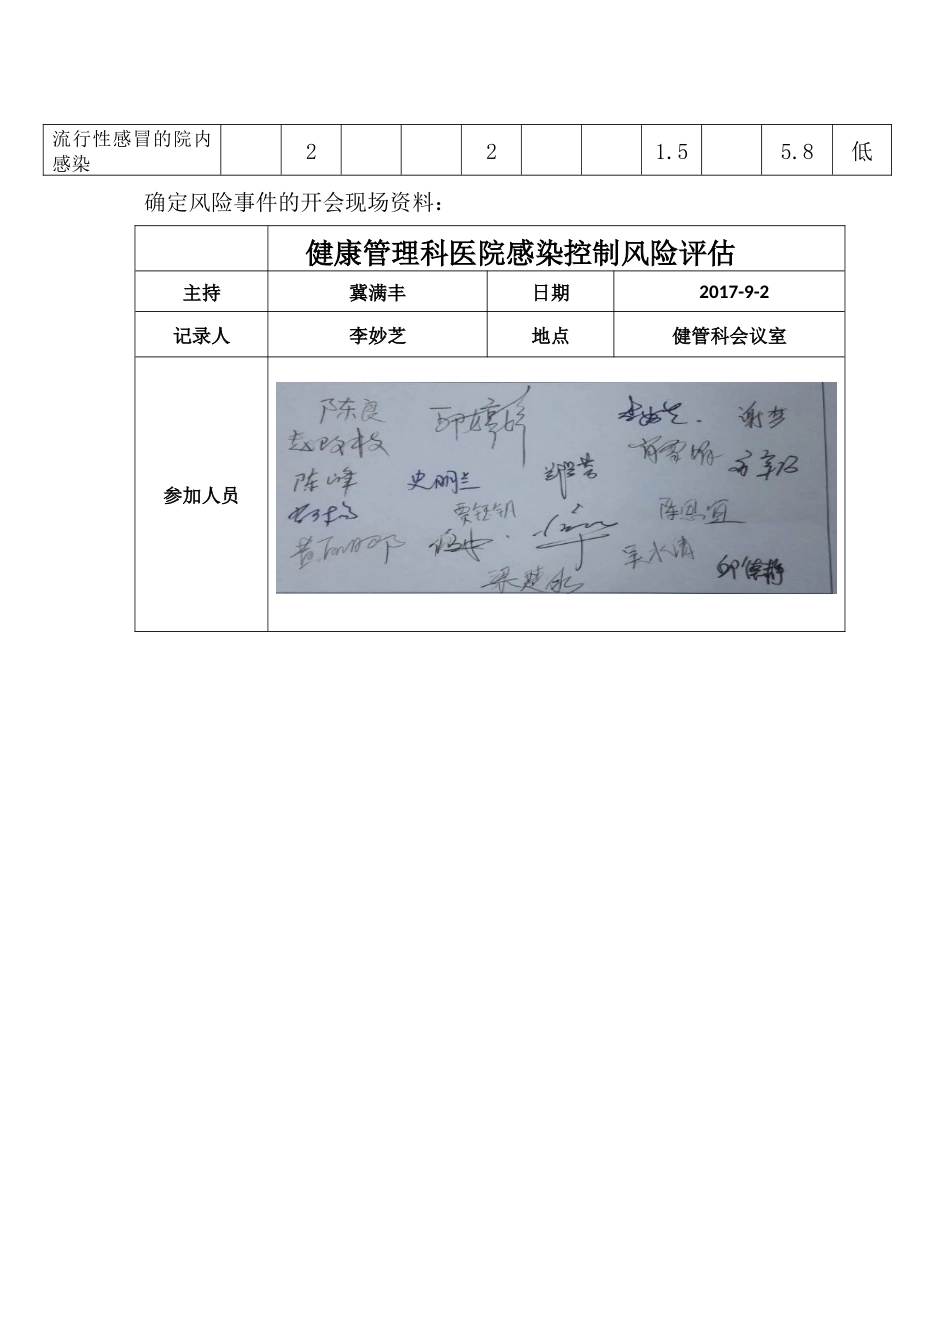 流行性感冒的院内
感染 2 2 1.5 5.8 低
确定风险事件的开会现场资料：
健康管理科医院感染控制风险评估
主持 冀满丰 日期 2017-9-2
记录人 李妙芝 地点 健管科会议室
参加人员
陈东良 邱婷婷 谢梦
陈峰 史丽兰
贾钰钥 陈思宜
梁楚水